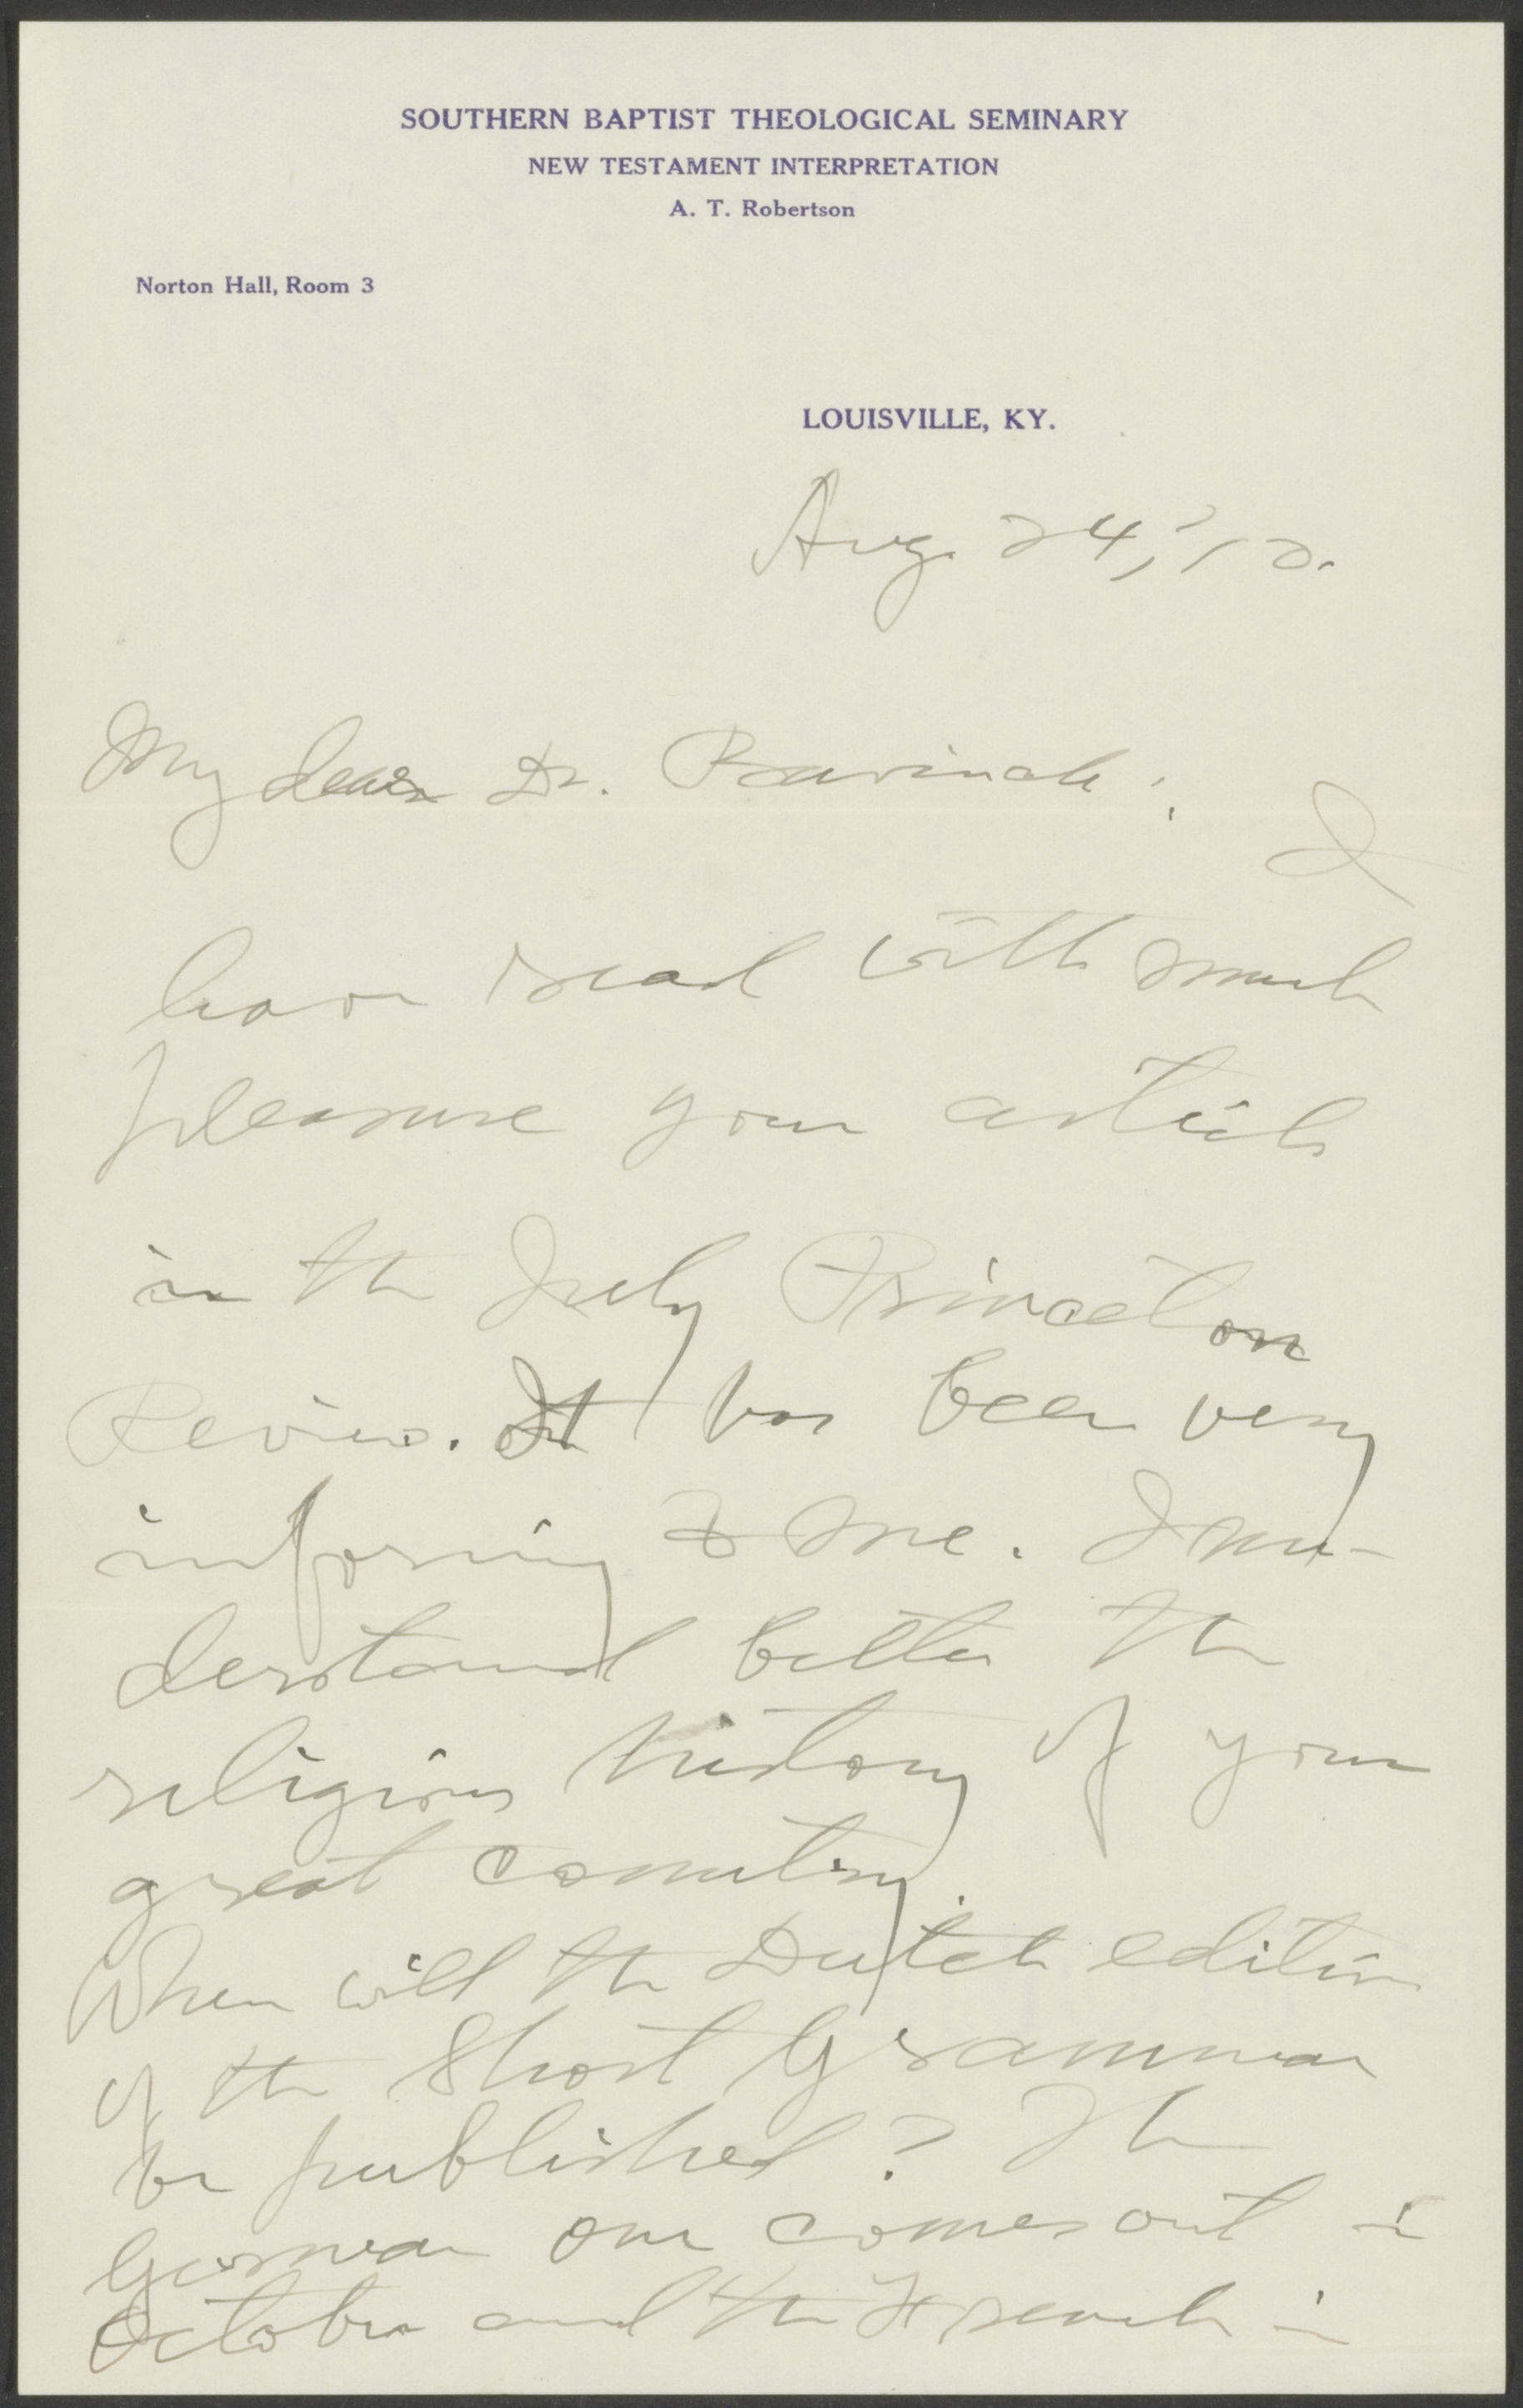 SOUTHERN BAPTIST THEOLOGICAL SEMINARY
NEW TESTAMENT INTERPRETATION
A. T. Robertson
Norton Hall, Room 3
LOUISVILLE, KY.
Aug. 24, '12.
My dear Dr. Bavinck:
I
have read with much
pleasure your article
in the July Princeton
Review. It has been very
informing to me. I un-
derstand better the
religious history of your
great country.
When will the Dutch edition
of the Short Grammar
be published? The
German one comes out in
October and the French in